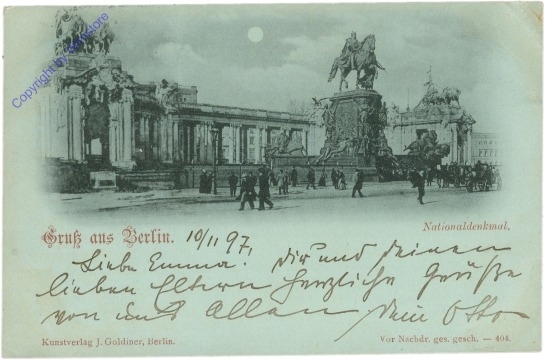 Copyright by akpool.de
Nationaldenkmal.
Gruß aus Berlin. 10/11 97.
Liebe Emma! Dir und deinen
lieben Eltern herzliche Grüße
von uns Allen Dein Otto
Kunstverlag J. Goldiner, Berlin.
Vor Nachdr. ges. gesch. — 404.